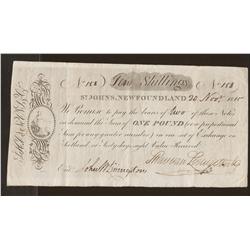 No 188 Ten Shillings No 188
ST. JOHNS, NEWFOUNDLAND 20 Novr. 1815
We Promise to pay the bearer of two of these Notes
on demand the Sum of ONE POUND (or a proportional
Sum for any greater number) in a set of Exchange on
Scotland at Sixty days sight Value Received
Entd. John Livingston